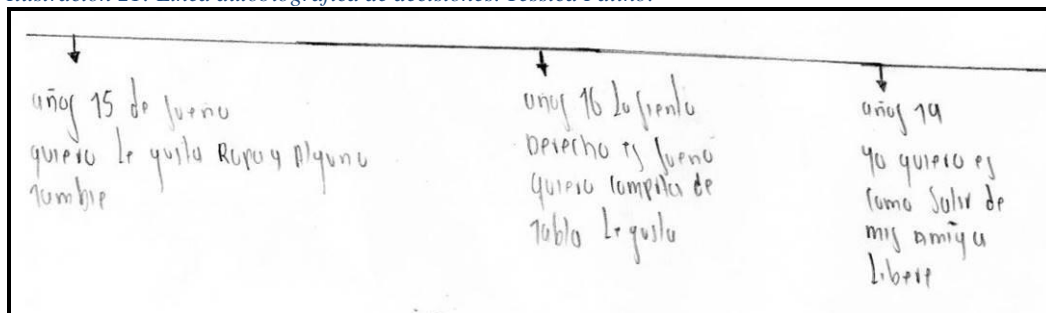 años 15 de sueño
quiero le gusta Ropa y Alguno
años 16 Lo siento
Derecho es sueño
quiero de
Le gusta
años 19
yo quiero es
como Salir de
mis amiga
Libere